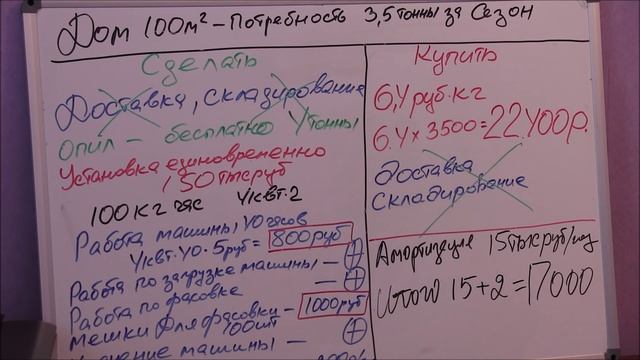 Дом 100м² – Потребность 3,5 тонны за Сезон
Сделать
Доставка, складирование
Опил – бесплатно 4 тонны
Установка единовременно
150 тыс руб
100 кг час 4 квт. 2
Работа машины 40 часов
4 квт. 40. 5 руб = 800 руб
Работа по загрузке машины – +
Работа по фасовке – +
Мешки для фасовки – 1000 руб
100 шт
машины – +
Купить
6,4 руб. кг
6.4 x 3500 = 22400 р.
Доставка
Складирование
Амортизация 15 тыс руб/
Итого 15+2 = 17000